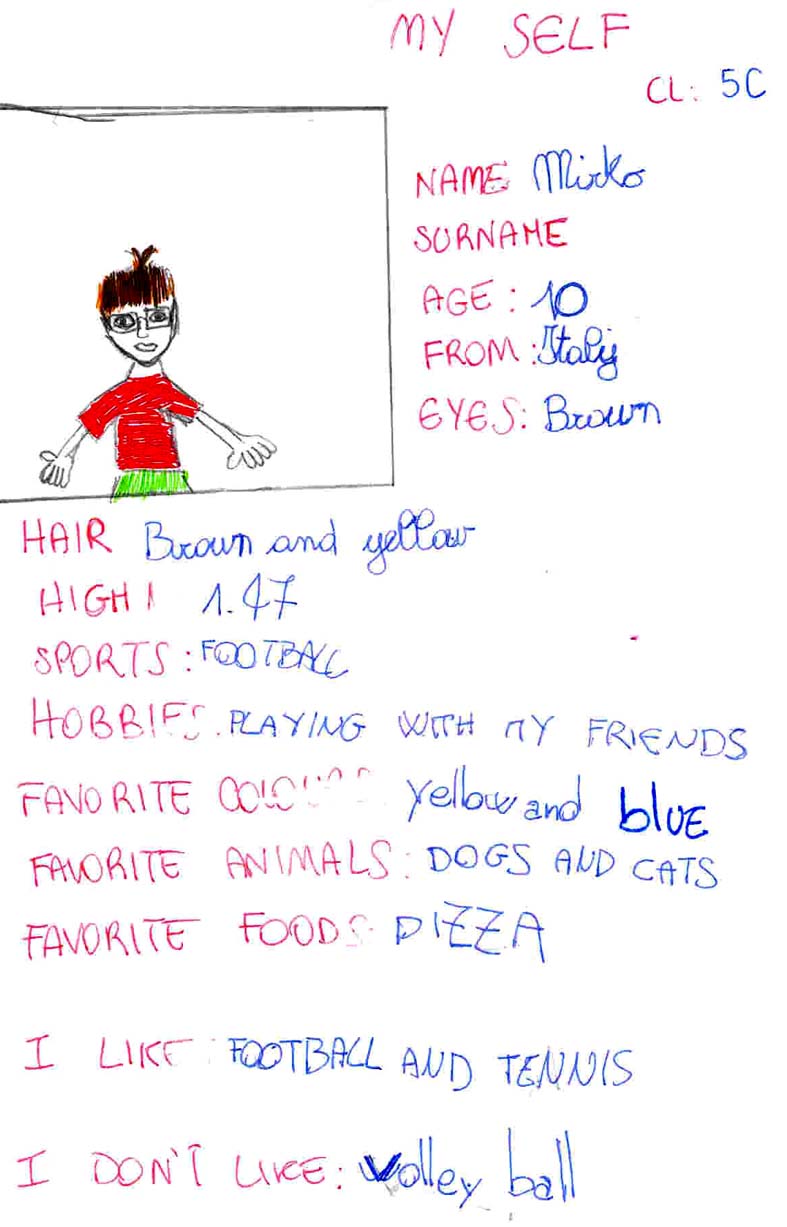 MY SELF
CL: 5C
NAME Mirko
SURNAME
AGE: 10
FROM: Italy
EYES: Brown
HAIR Brown and yellow
HIGH 1.47
SPORTS: FOOTBALL
HOBBIES. PLAYING WITH MY FRIENDS
FAVORITE yellow and blue
FAVORITE ANIMALS: DOGS AND CATS
FAVORITE FOODS PIZZA
I LIKE: FOOTBALL AND TENNIS
I DON'T LIKE: volley ball